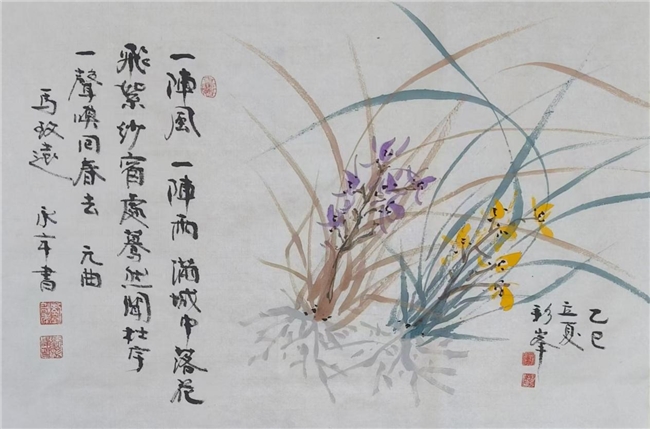 一陣風 一陣雨 滿城中落花
飛絮紗窗處驀然聞杜宇
一聲喚回春去 元曲
馬致遠 永年書
乙巳
立夏
彩峯